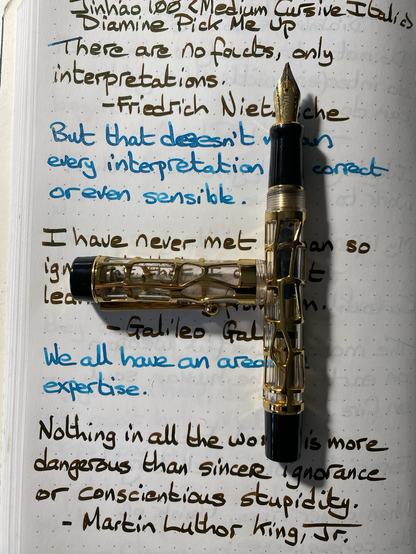 Jinhao 100 <Medium Cursive Italic>
Diamine Pick Me Up
There are no facts, only
interpretations.
-Friedrich Nietzsche
But that doesn't an
every interpretation correct
or even sensible.
I have never met an so
ign t
lea n.
- Galileo Gal
We all have an area
expertise.
Nothing in all the wor is more
dangerous than sincere ignorance
or conscientious stupidity.
- Martin Luthor King, Jr.